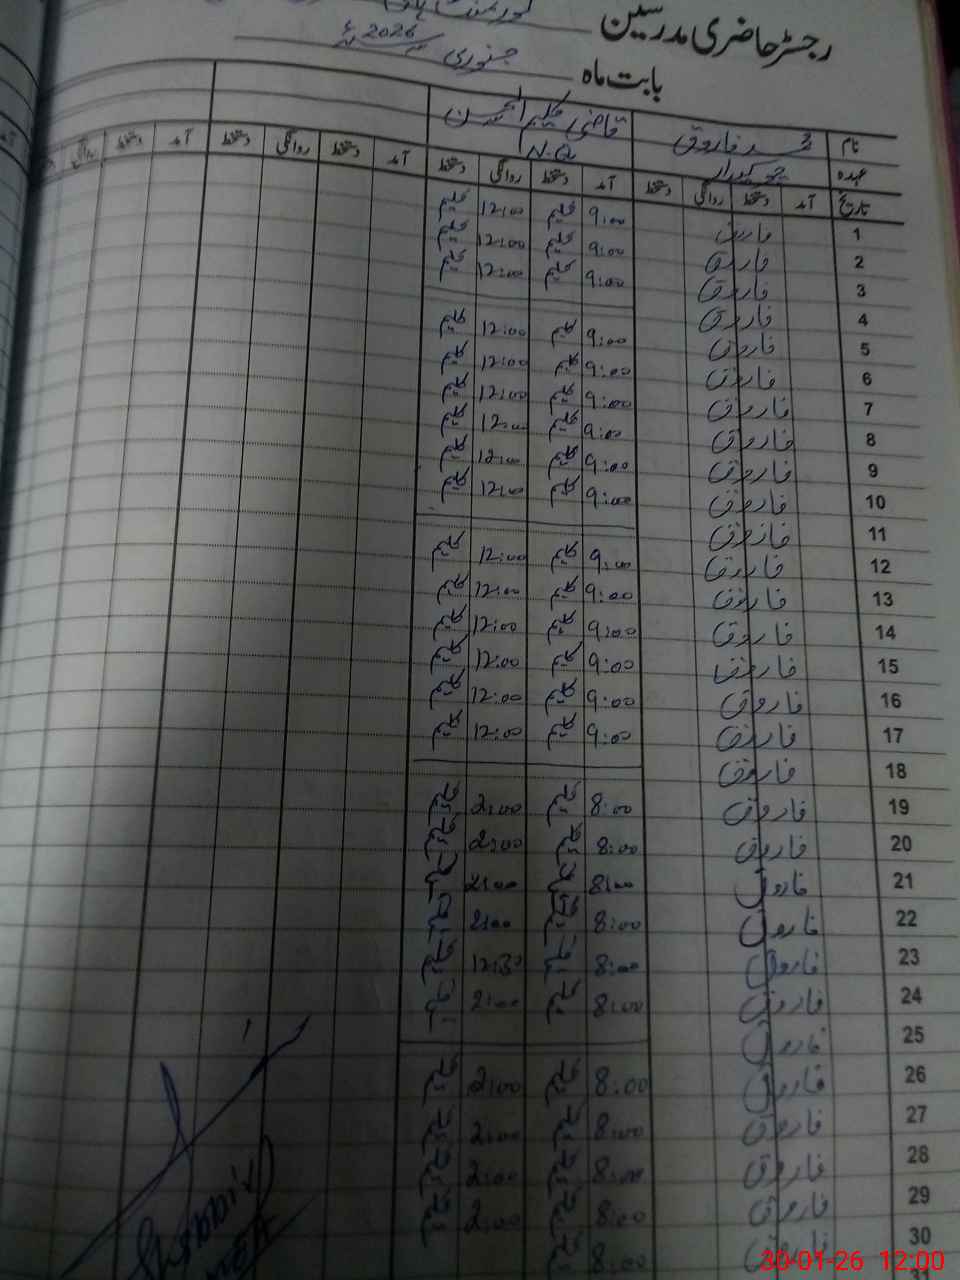 رجسٹر حاضری مدرسین
بابت ماہ جنوری 2026ء
نام محمد فاروق قاضی کلیم الحسن
عہدہ چوکیدار N.Q
تاریخ آمد دستخط روانگی دستخط آمد دستخط روانگی دستخط آمد دستخط روانگی دستخط آمد دستخط روانگی
1 فاروق 9:00 کلیم 12:00 کلیم
2 فاروق 9:00 کلیم 12:00 کلیم
3 فاروق 9:00 کلیم 12:00 کلیم
4 فاروق
5 فاروق 9:00 کلیم 12:00 کلیم
6 فاروق 9:00 کلیم 12:00 کلیم
7 فاروق 9:00 کلیم 12:00 کلیم
8 فاروق 9:00 کلیم 12:00 کلیم
9 فاروق 9:00 کلیم 12:00 کلیم
10 فاروق 9:00 کلیم 12:00 کلیم
11 فاروق
12 فاروق 9:00 کلیم 12:00 کلیم
13 فاروق 9:00 کلیم 12:00 کلیم
14 فاروق 9:00 کلیم 12:00 کلیم
15 فاروق 9:00 کلیم 12:00 کلیم
16 فاروق 9:00 کلیم 12:00 کلیم
17 فاروق 9:00 کلیم 12:00 کلیم
18 فاروق
19 فاروق 8:00 کلیم 2:00 کلیم
20 فاروق 8:00 کلیم 2:00 کلیم
21 فاروق 8:00 کلیم 2:00 کلیم
22 فاروق 8:00 کلیم 2:00 کلیم
23 فاروق 8:00 کلیم 12:30 کلیم
24 فاروق 8:00 کلیم 2:00 کلیم
25 فاروق
26 فاروق 8:00 کلیم 2:00 کلیم
27 فاروق 8:00 کلیم 2:00 کلیم
28 فاروق 8:00 کلیم 2:00 کلیم
29 فاروق 8:00 کلیم 2:00 کلیم
30 فاروق 8:00 کلیم
30-01-26 12:00